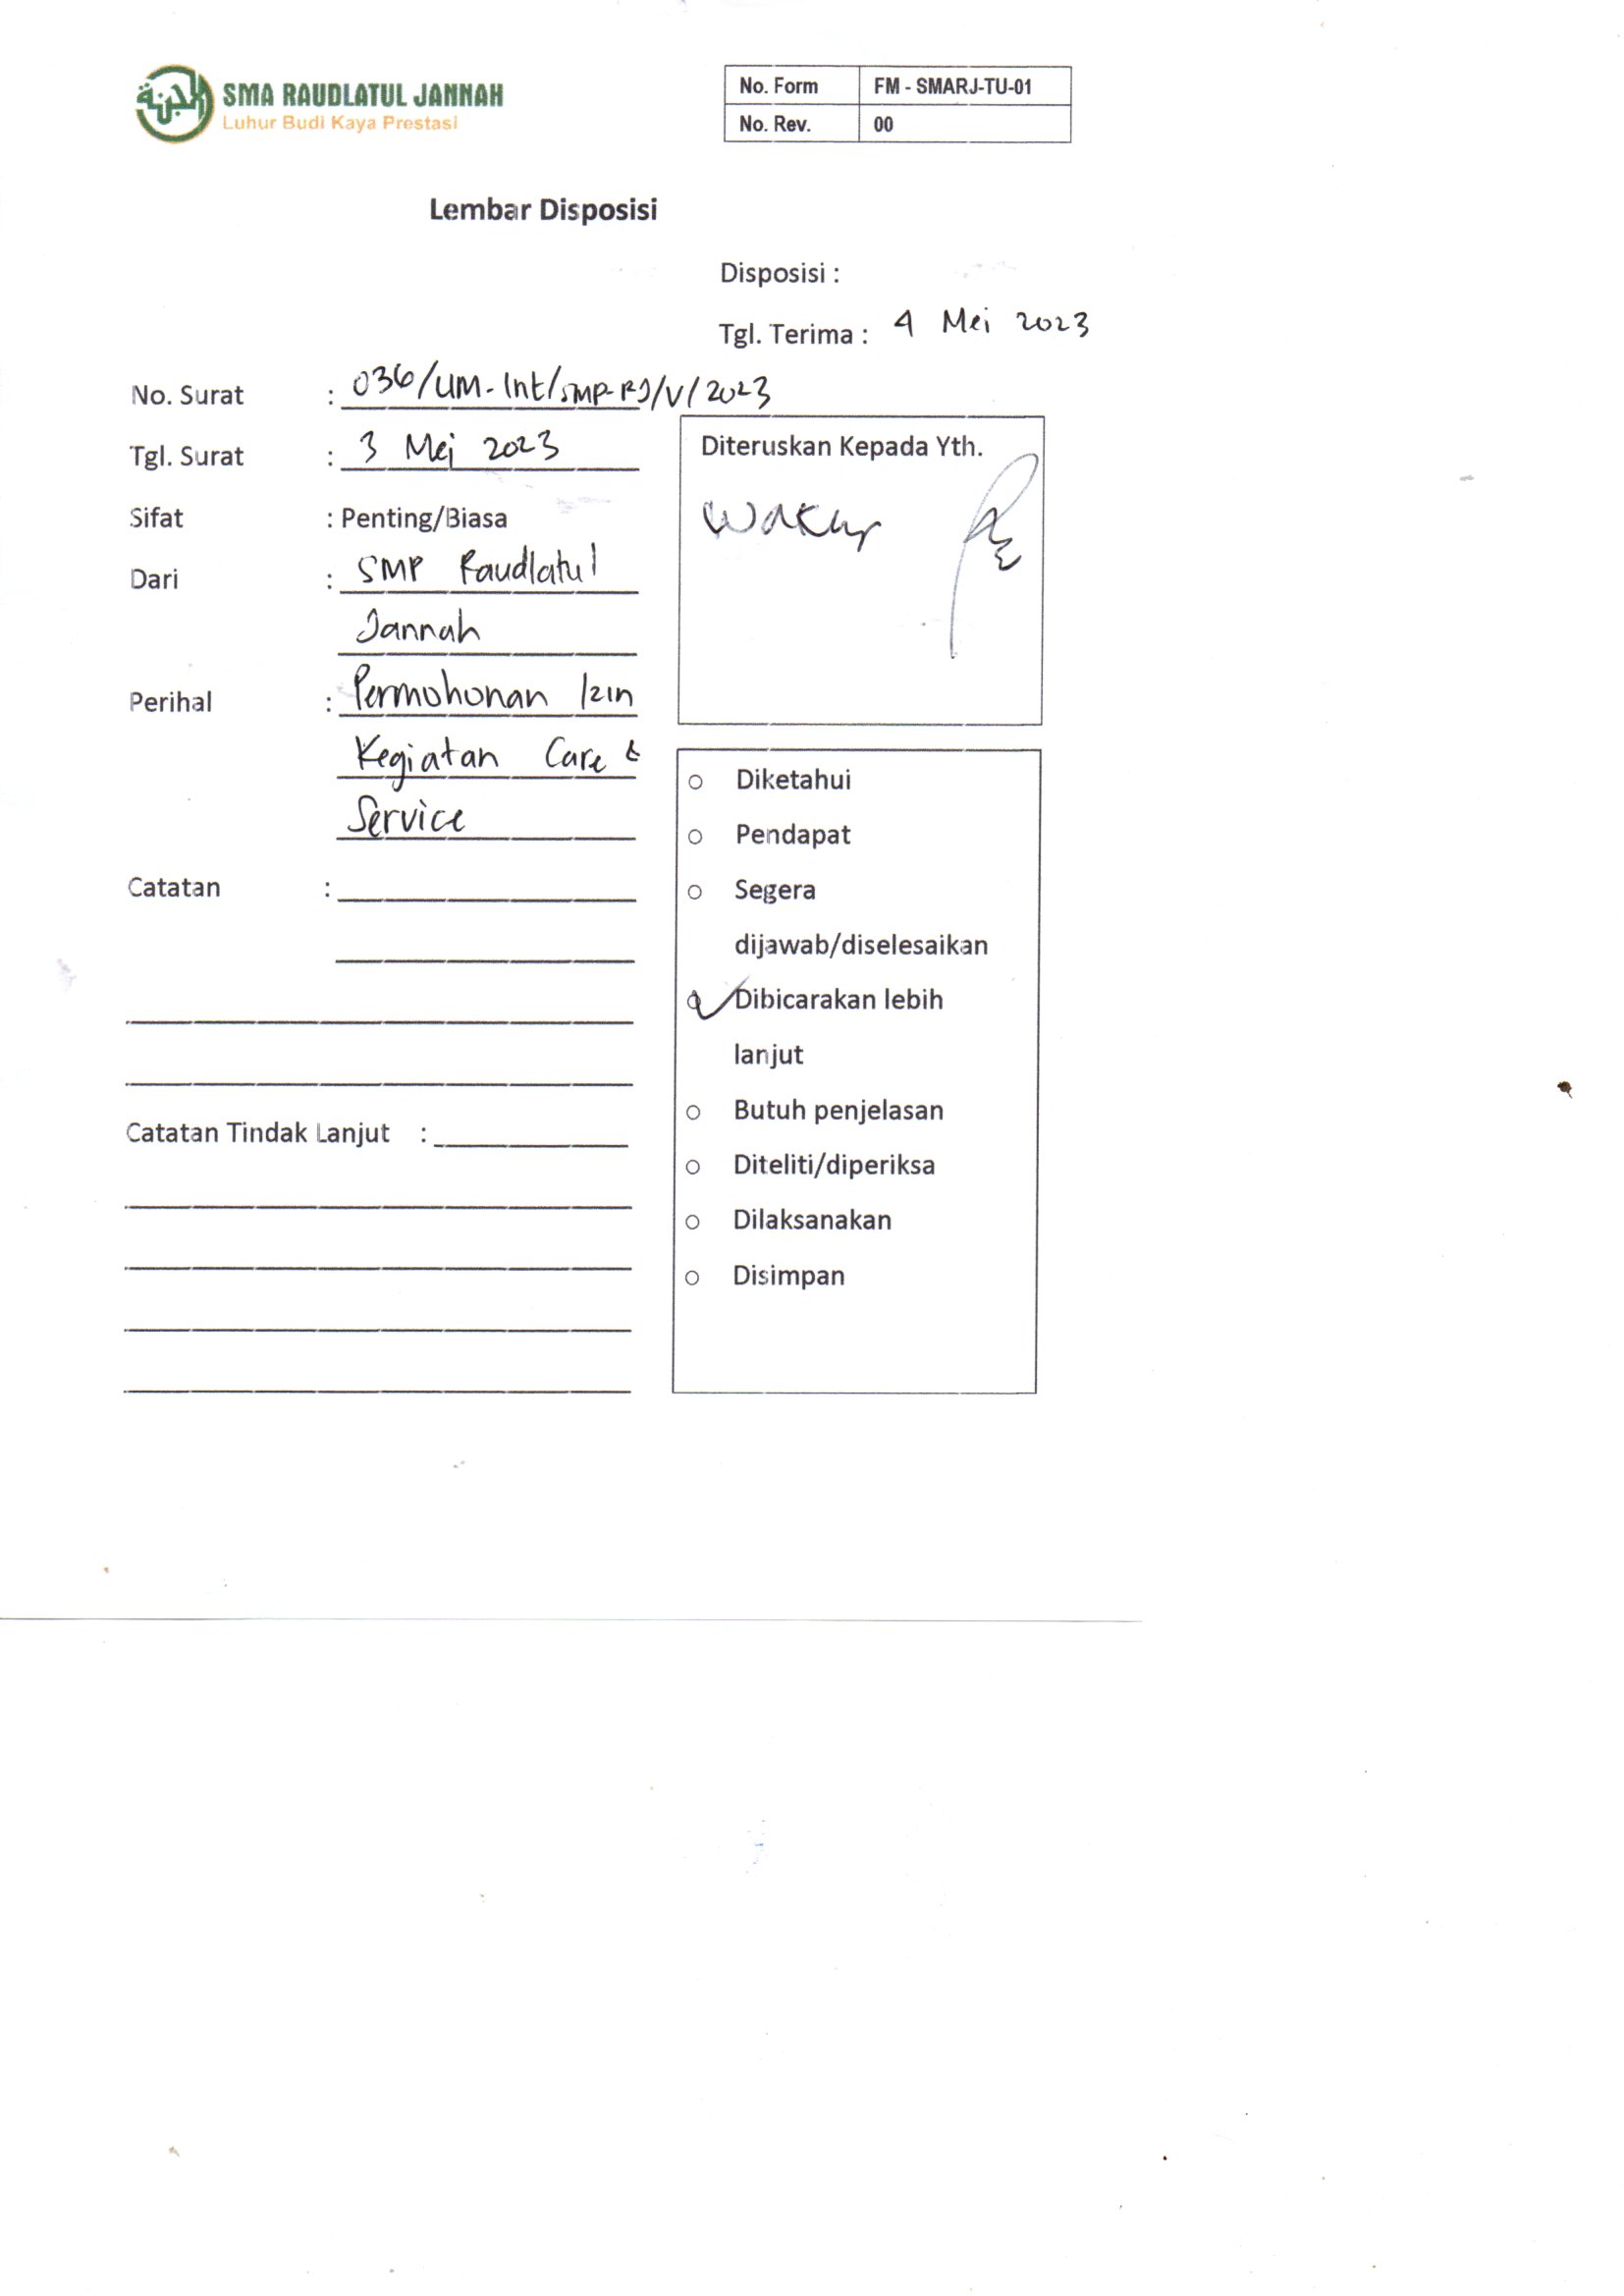 SMA RAUDLATUL JANNAH
Luhur Budi Kaya Prestasi
No. Form FM - SMARJ-TU-01
No. Rev. 00
Lembar Disposisi
Disposisi :
Tgl. Terima : 4 Mei 2023
No. Surat : 036/UM-Int/SMP-RJ/V/2023
Tgl. Surat : 3 Mei 2023
Sifat : Penting/Biasa
Dari : SMP Raudlatul
Jannah
Perihal : Permohonan Izin
Kegiatan Care &
Service
Catatan :
Catatan Tindak Lanjut :
Diteruskan Kepada Yth.
Wakur
○ Diketahui
○ Pendapat
○ Segera
dijawab/diselesaikan
○ Dibicarakan lebih
lanjut
○ Butuh penjelasan
○ Diteliti/diperiksa
○ Dilaksanakan
○ Disimpan